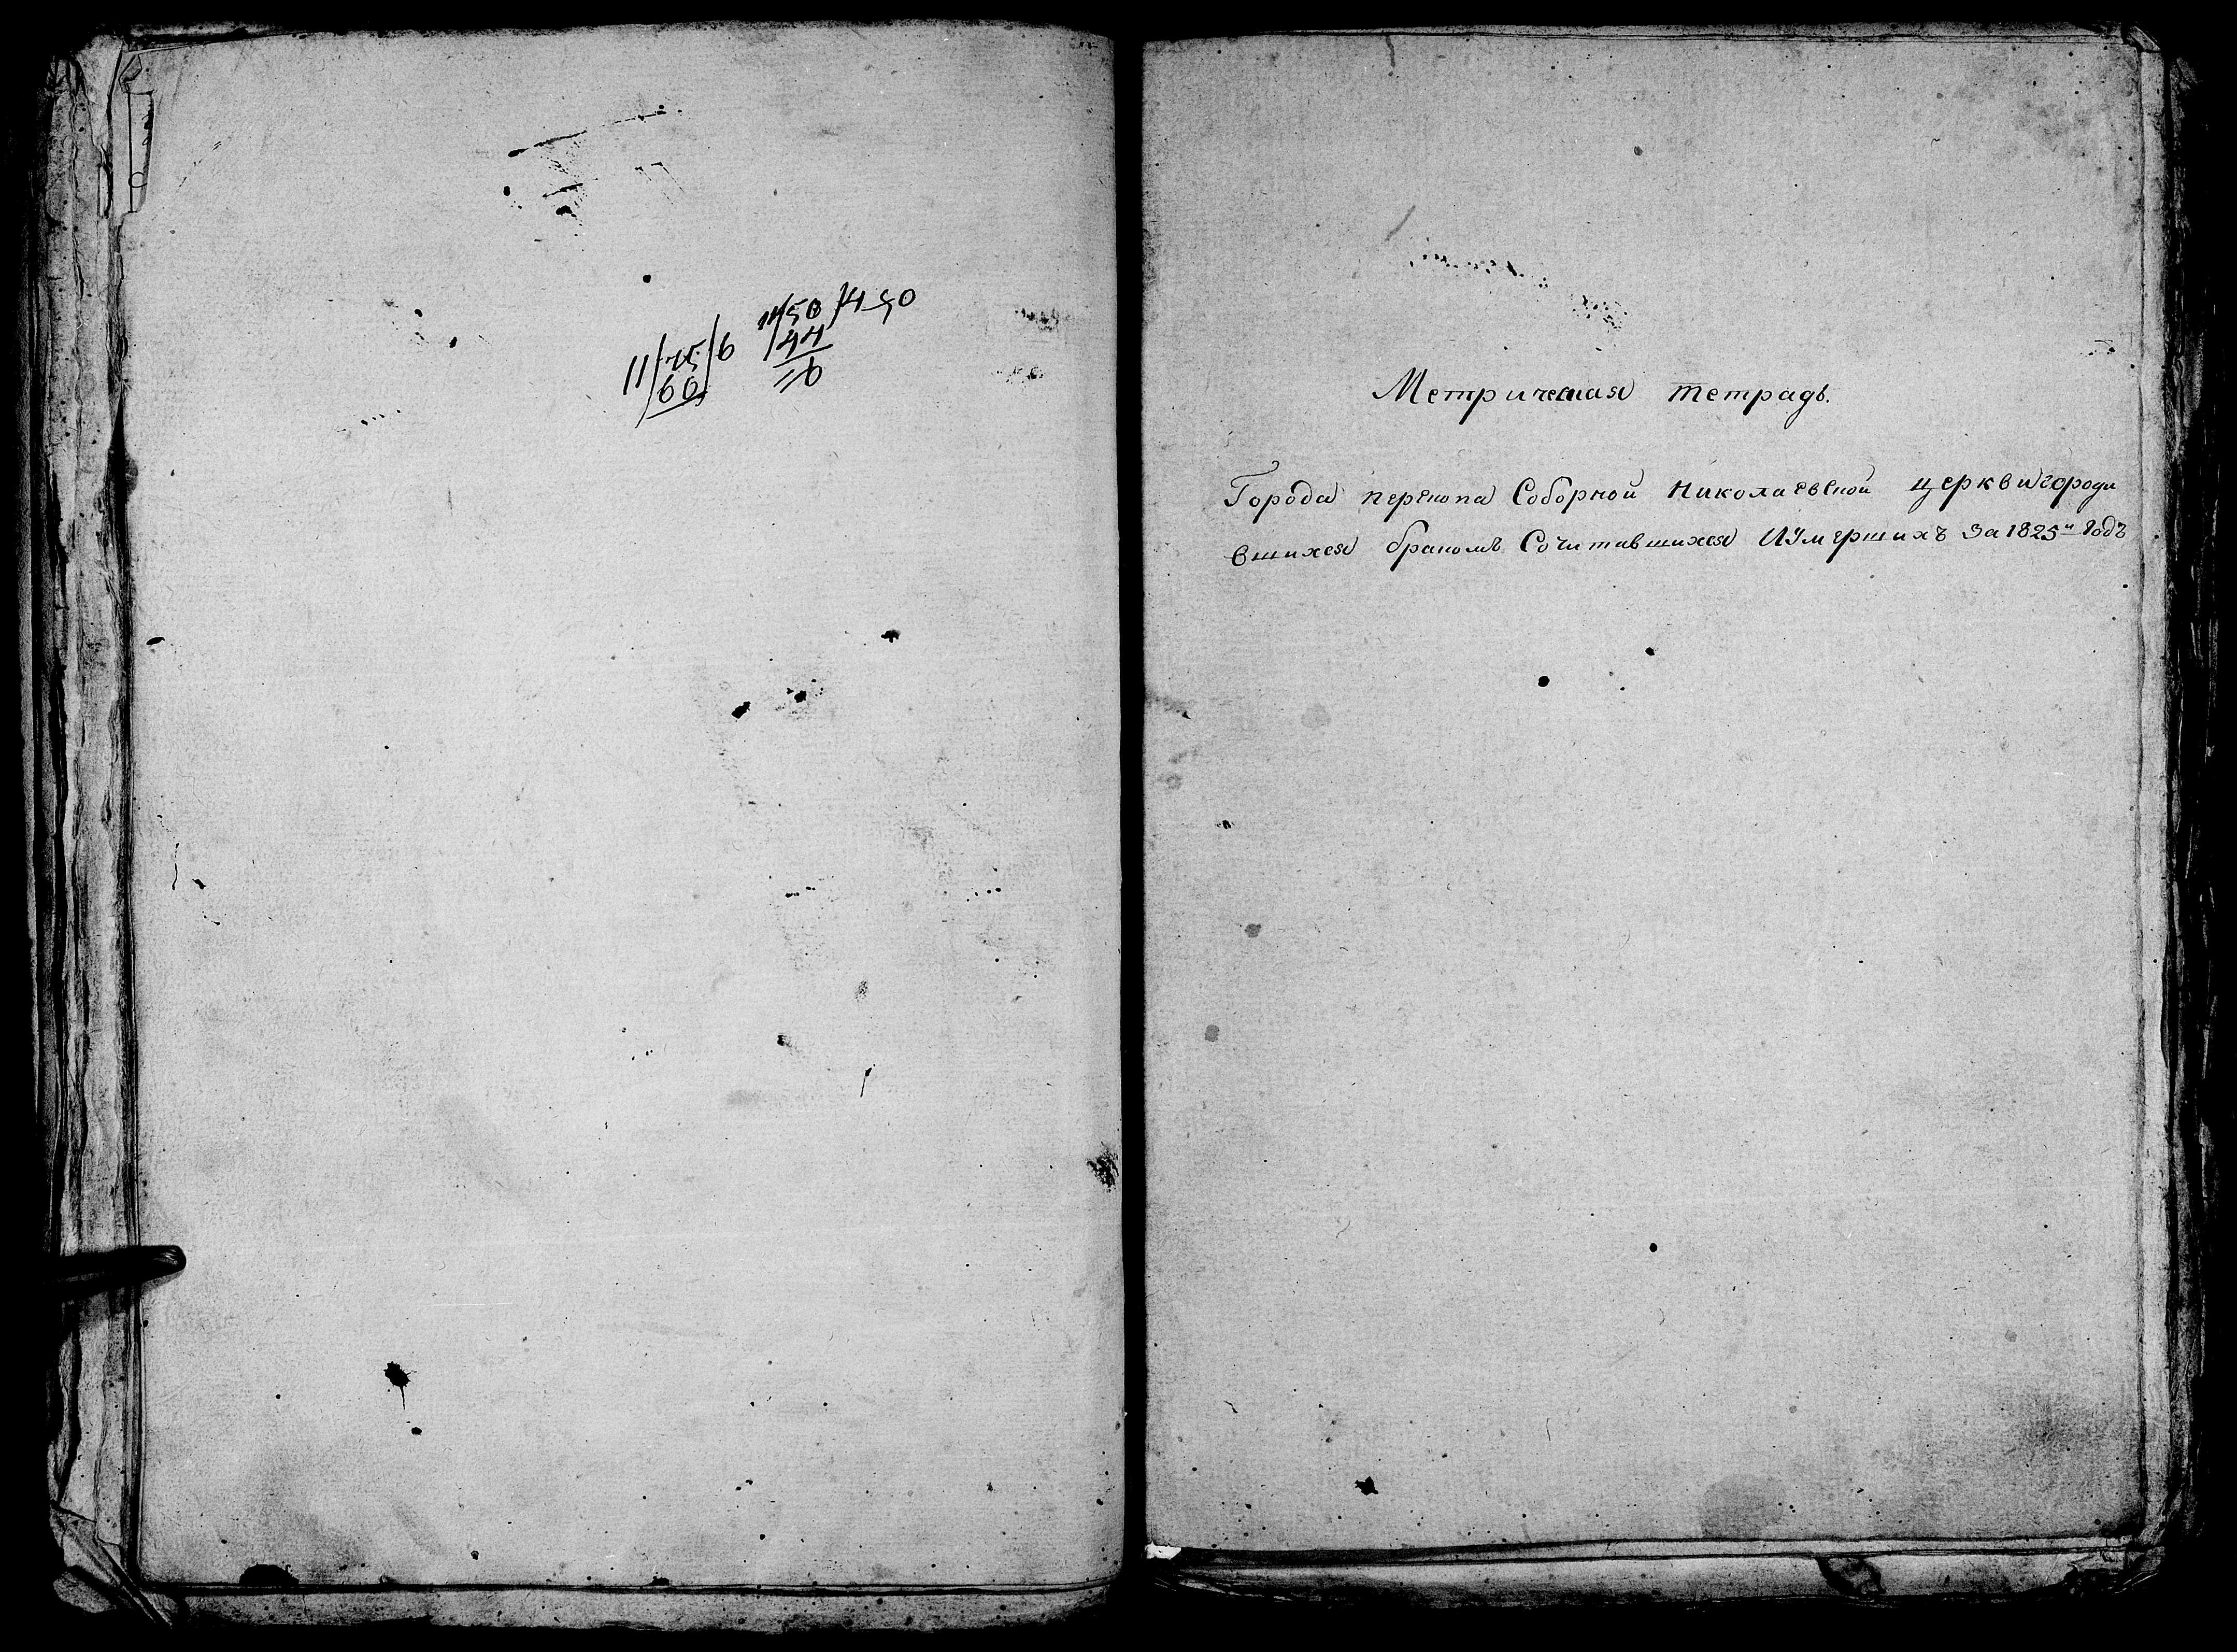 11/50/4 50
11/75/6 44
66 6
Метрическая тетрадь.
Города перекопа Соборной Николаевской церкви городи
вшихся бракомъ Сочитавшихся И Умершихъ За 1825й Годъ